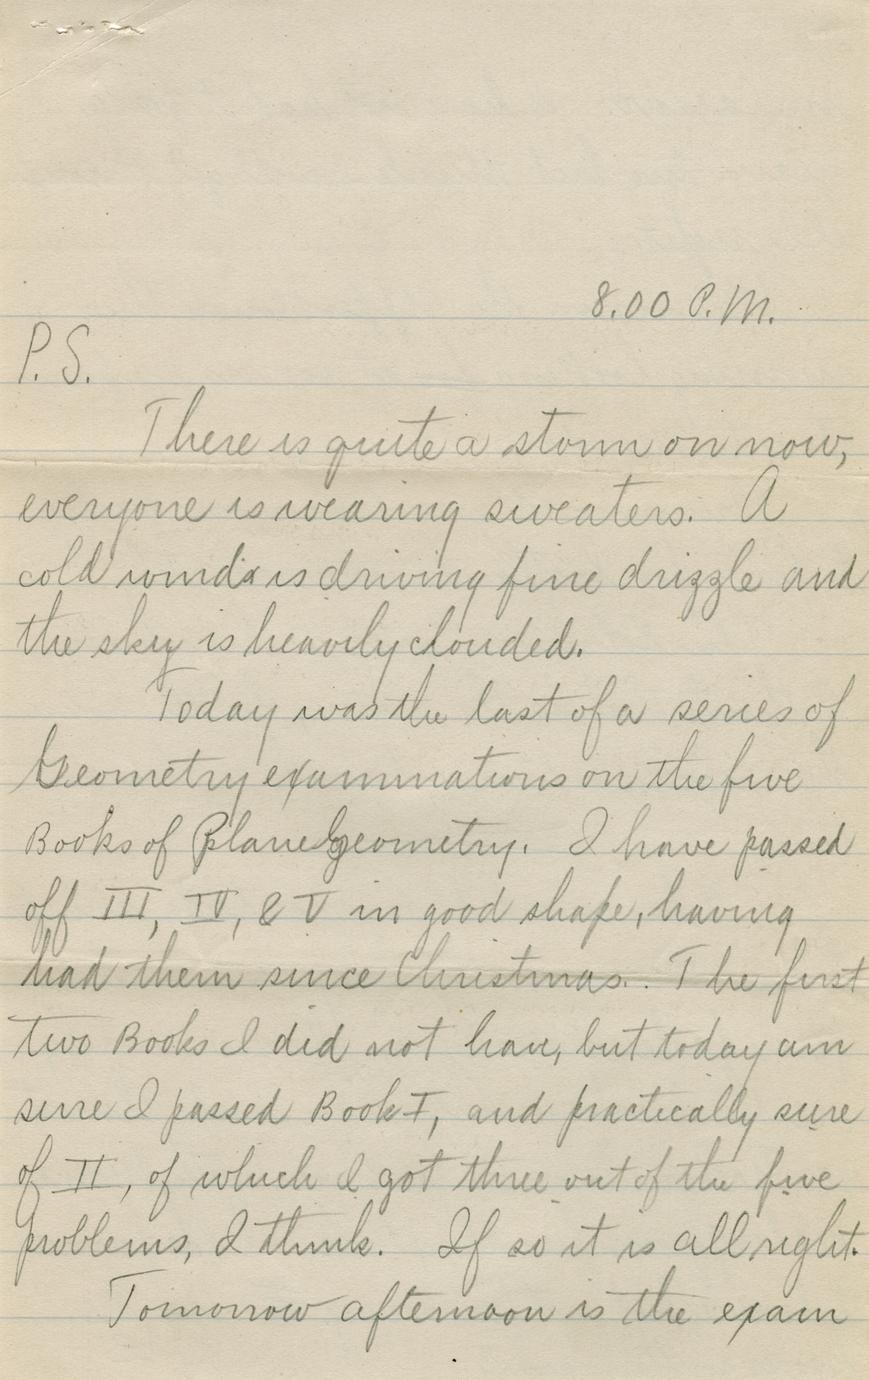 8.00 P.M.
P.S.
There is quite a storm on now,
everyone is wearing sweaters. A
cold wind is driving fine drizzle and
the sky is heavily clouded.
Today was the last of a series of
Geometry examinations on the five
Books of Plane Geometry. I have passed
off III, IV, & V in good shape, having
had them since Christmas. The first
two Books I did not have, but today am
sure I passed Book I, and practically sure
of II, of which I got three out of the five
problems, I think. If so it is all right.
Tomorrow afternoon is the exam